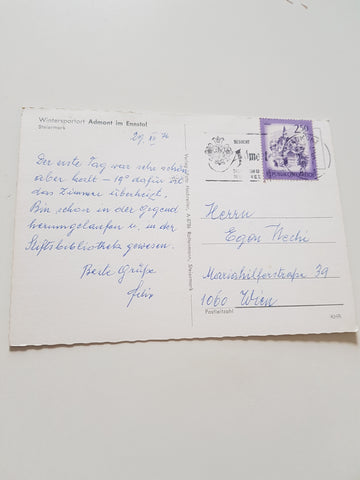 Wintersportort Admont im Ennstal
Steiermark
29. XII 74
Der erste Tag war sehr schön
aber kalt - 19° dafür ist
das Zimmer überheizt.
Bin schon in der Gegend
herumgelaufen u. in der
Stiftsbibliothek gewesen.
Beste Grüße
Felix
A-8786 Rottenmann, Steiermark
BESUCHT
REPUBLIK ÖSTERREICH
Herrn
Egon
Mariahilferstraße 39
1060 Wien
Postleitzahl